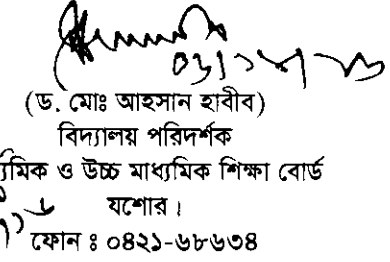 (ড. মোঃ আহসান হাবীব)
বিদ্যালয় পরিদর্শক
ও উচ্চ মাধ্যমিক শিক্ষা বোর্ড
যশোর।
ফোন ঃ ০৪২১-৬৮৬৩৪